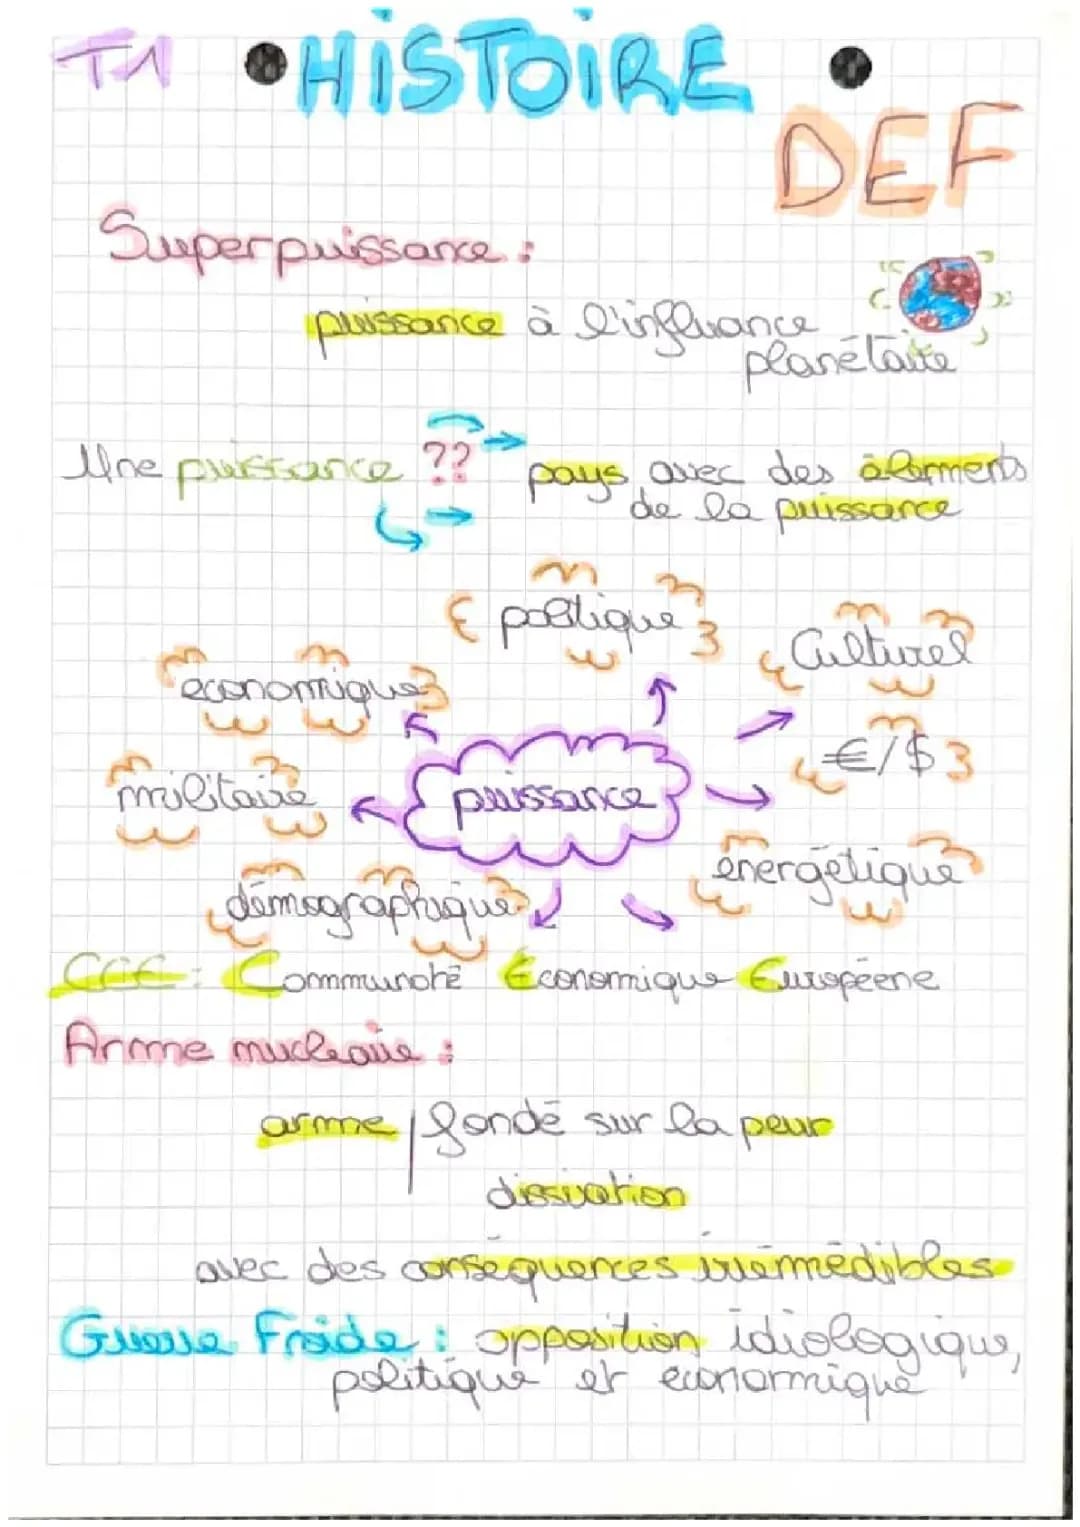 T1 • HISTOIRE •
DEF
Superpuissance :
puissance à l'influance
planétaire
Une puissance ?? → pays avec des élements
de la puissance
politique
Culturel
économique
€/$
militaire
puissance
énergétique
démographique
CEE : Communoté Économique Européene
Arme nucleaire :
arme fondé sur la peur
dissuation
avec des conséquences irrémédibles
Guerre Froide : opposition idiologique,
politique et économique